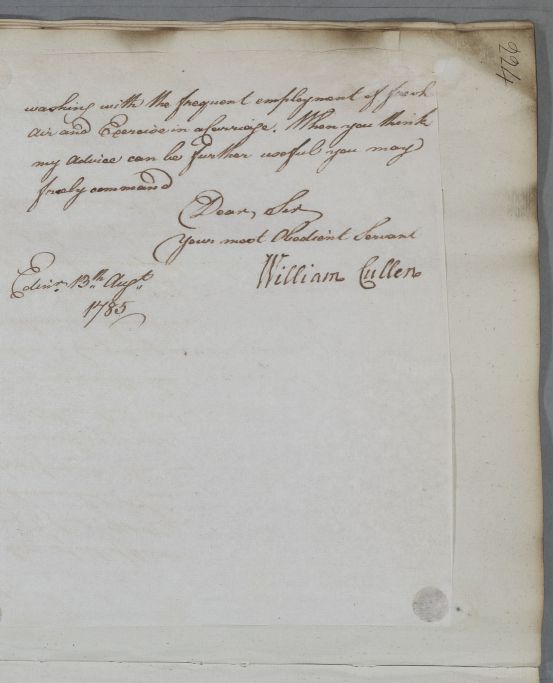 224
washing with the frequent employment of fresh
air and Exercise in a Carriage. When you think
my advice can be further useful you may
freely command
Dear Sir
Your most Obedient Servant
William Cullen
Edinr. 13th. Augt.
1785